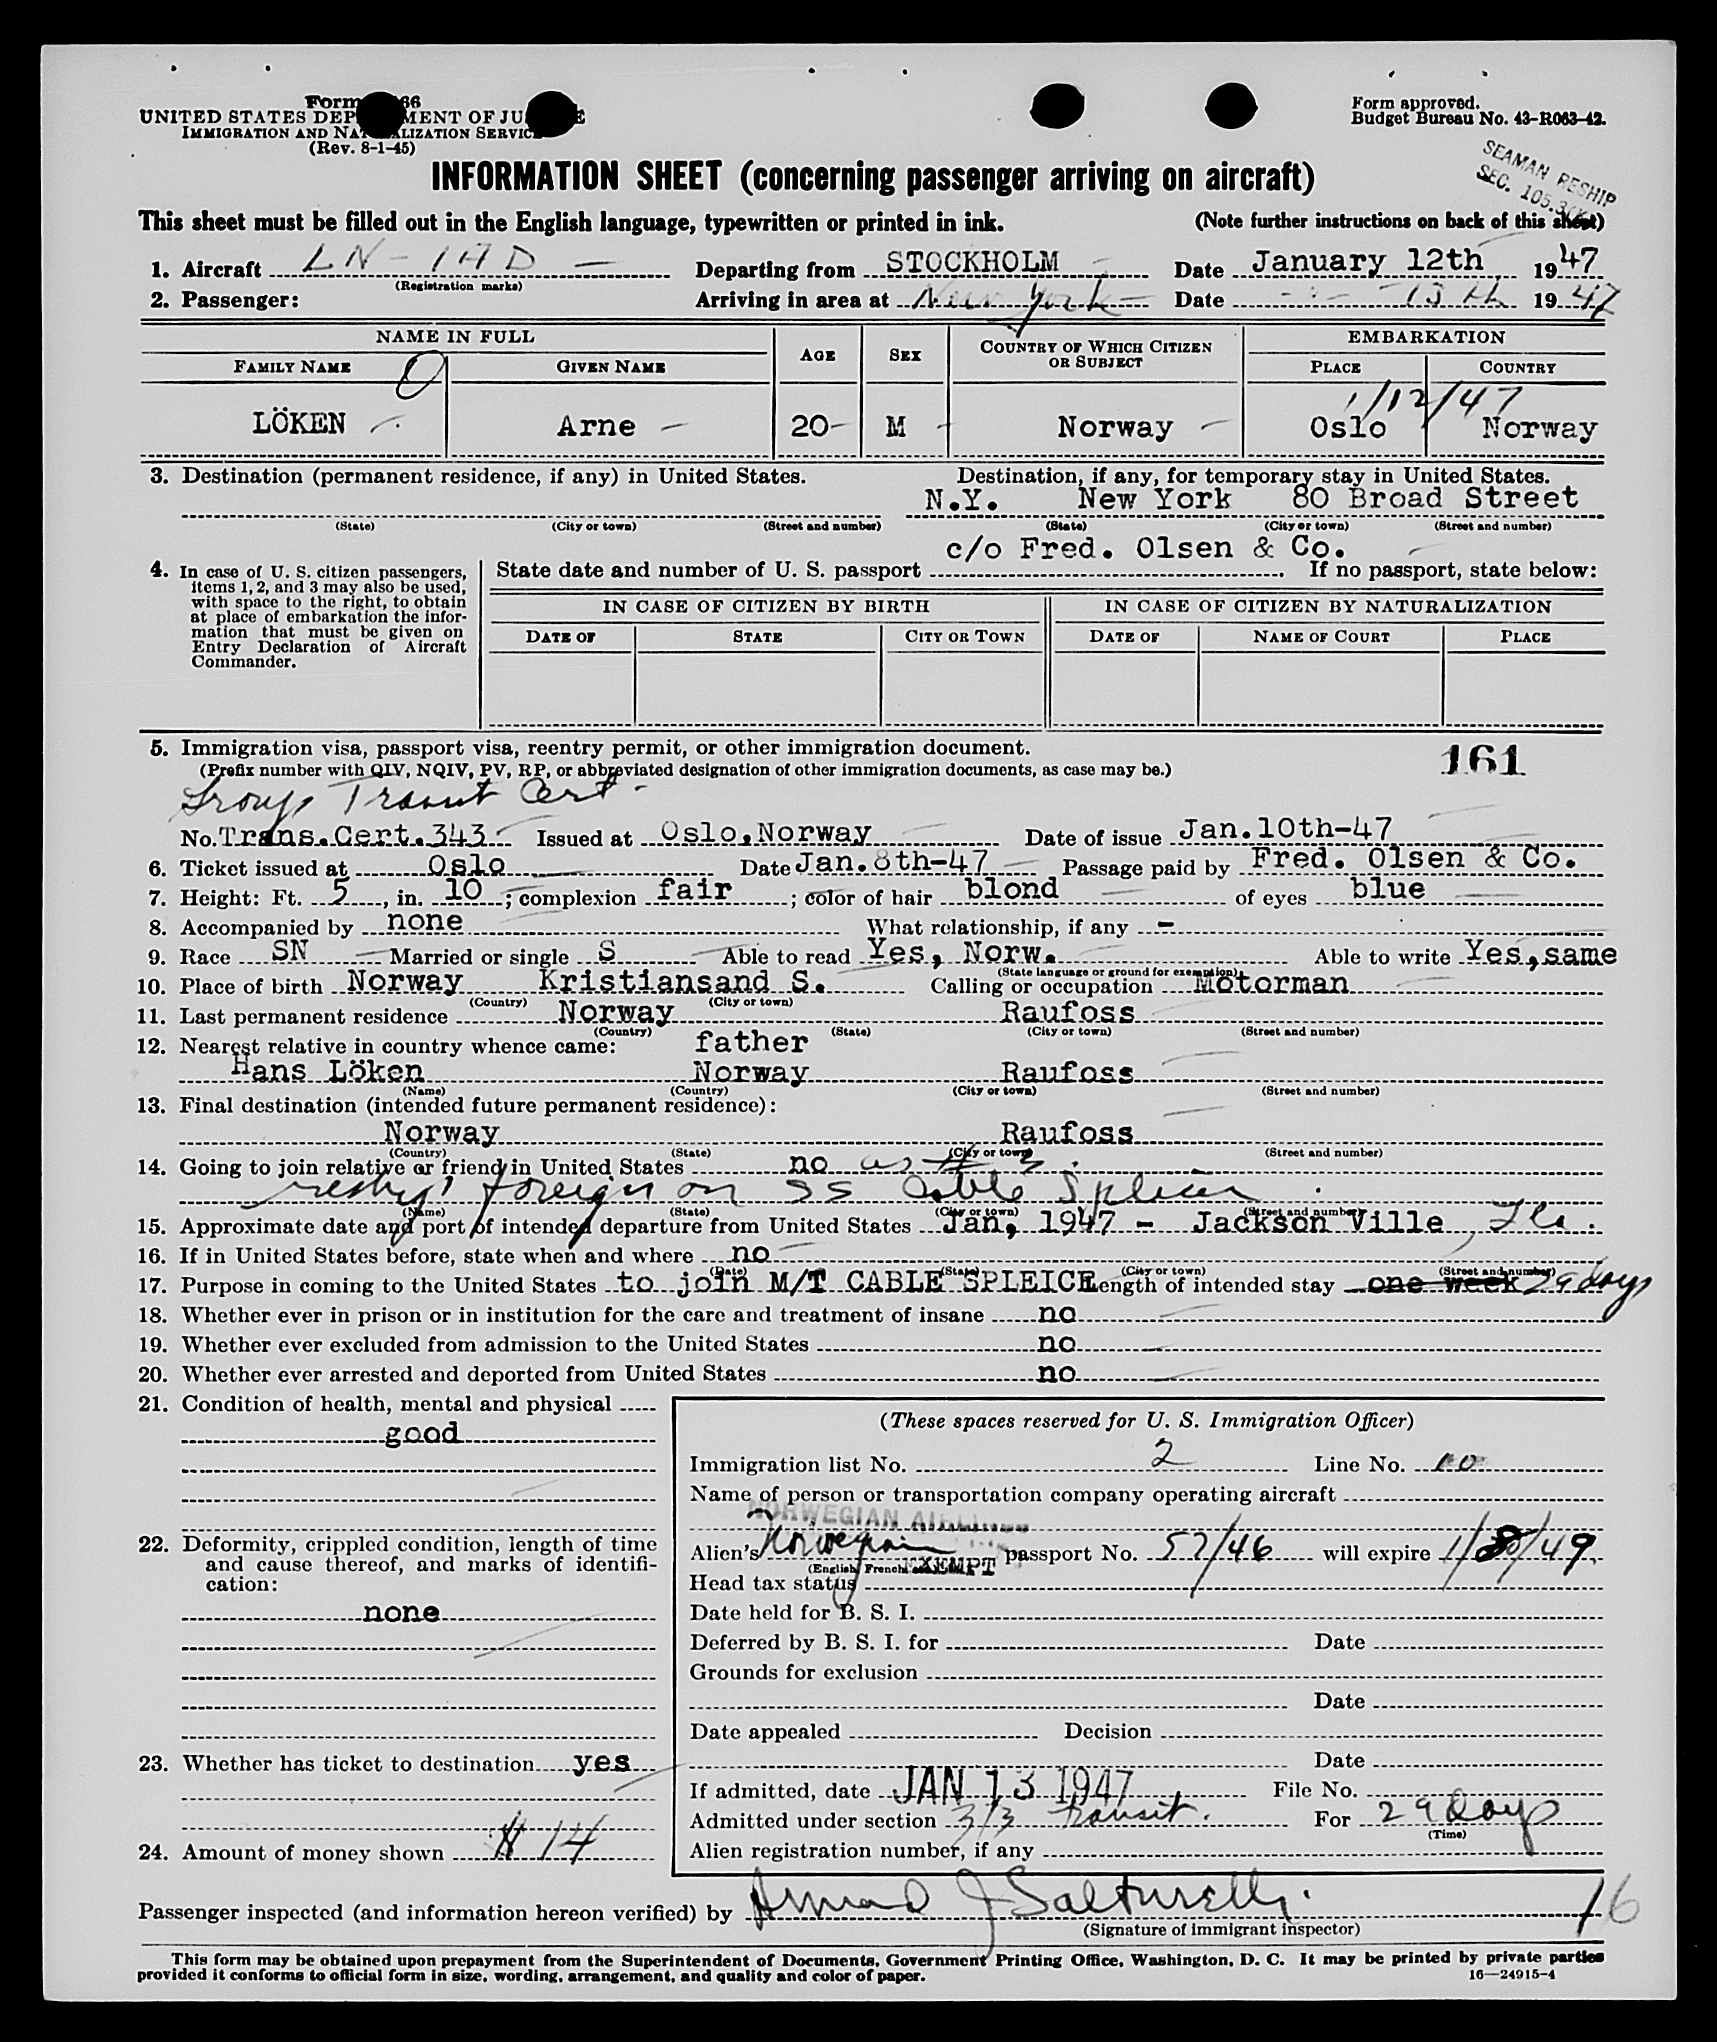 Form 66
UNITED STATES DEP MENT OF JU E
IMMIGRATION AND NAT LIZATION SERVIC
(Rev. 8-1-45)
Form approved.
Budget Bureau No. 43-R063-42.
SEAMAN RESHIP
SEC. 105.3
INFORMATION SHEET (concerning passenger arriving on aircraft)
This sheet must be filled out in the English language, typewritten or printed in ink. (Note further instructions on back of this sheet)
1. Aircraft LN-IAD - Departing from STOCKHOLM Date January 12th 1947
(Registration marks)
2. Passenger: Arriving in area at New York - Date 13th 1947
NAME IN FULL AGE SEX COUNTRY OF WHICH CITIZEN OR SUBJECT EMBARKATION
FAMILY NAME GIVEN NAME PLACE COUNTRY
1/12/47
LÖKEN Arne 20 M Norway Oslo Norway
3. Destination (permanent residence, if any) in United States. Destination, if any, for temporary stay in United States.
N.Y. New York 80 Broad Street
(State) (City or town) (Street and number) (State) (City or town) (Street and number)
c/o Fred. Olsen & Co.
4. In case of U. S. citizen passengers, items 1, 2, and 3 may also be used, with space to the right, to obtain at place of embarkation the information that must be given on Entry Declaration of Aircraft Commander.
State date and number of U. S. passport If no passport, state below:
IN CASE OF CITIZEN BY BIRTH IN CASE OF CITIZEN BY NATURALIZATION
DATE OF STATE CITY OR TOWN DATE OF NAME OF COURT PLACE
5. Immigration visa, passport visa, reentry permit, or other immigration document. 161
(Prefix number with QIV, NQIV, PV, RP, or abbreviated designation of other immigration documents, as case may be.)
Group Transit Cert.
No. Trans.Cert.343 Issued at Oslo,Norway Date of issue Jan.10th-47
6. Ticket issued at Oslo Date Jan.8th-47 Passage paid by Fred. Olsen & Co.
7. Height: Ft. 5, in. 10; complexion fair; color of hair blond of eyes blue
8. Accompanied by none What relationship, if any -
9. Race SN Married or single S Able to read Yes, Norw. Able to write Yes,same
(State language or ground for exemption)
10. Place of birth Norway Kristiansand S. Calling or occupation Motorman
(Country) (City or town)
11. Last permanent residence Norway Raufoss
(Country) (State) (City or town) (Street and number)
12. Nearest relative in country whence came: father
Hans Löken Norway Raufoss
(Name) (Country) (City or town) (Street and number)
13. Final destination (intended future permanent residence):
Norway Raufoss
(Country) (State) (City or town) (Street and number)
14. Going to join relative or friend in United States no as # 3.
reship foreign on SS Cable Splicer.
(Name) (State) (City or town) (Street and number)
15. Approximate date and port of intended departure from United States Jan, 1947 - Jackson Ville, Fla.
16. If in United States before, state when and where no
(Date) (State) (City or town) (Street and number)
17. Purpose in coming to the United States to join M/T CABLE SPLEICE Length of intended stay one week 29 days
18. Whether ever in prison or in institution for the care and treatment of insane no
19. Whether ever excluded from admission to the United States no
20. Whether ever arrested and deported from United States no
21. Condition of health, mental and physical
good
22. Deformity, crippled condition, length of time and cause thereof, and marks of identification:
none
23. Whether has ticket to destination yes
24. Amount of money shown $14
(These spaces reserved for U. S. Immigration Officer)
Immigration list No. 2 Line No. 10
Name of person or transportation company operating aircraft
NORWEGIAN AIRLINES
Alien's Norwegian passport No. 57/46 will expire 1/8/49
(English, French
Head tax status EXEMPT
Date held for B. S. I.
Deferred by B. S. I. for Date
Grounds for exclusion
Date
Date appealed Decision
Date
If admitted, date JAN 13 1947 File No.
Admitted under section 3/3 transit. For 29 days
(Time)
Alien registration number, if any
Passenger inspected (and information hereon verified) by 16
(Signature of immigrant inspector)
This form may be obtained upon prepayment from the Superintendent of Documents, Government Printing Office, Washington, D. C. It may be printed by private parties
provided it conforms to official form in size, wording, arrangement, and quality and color of paper. 16—24915-4